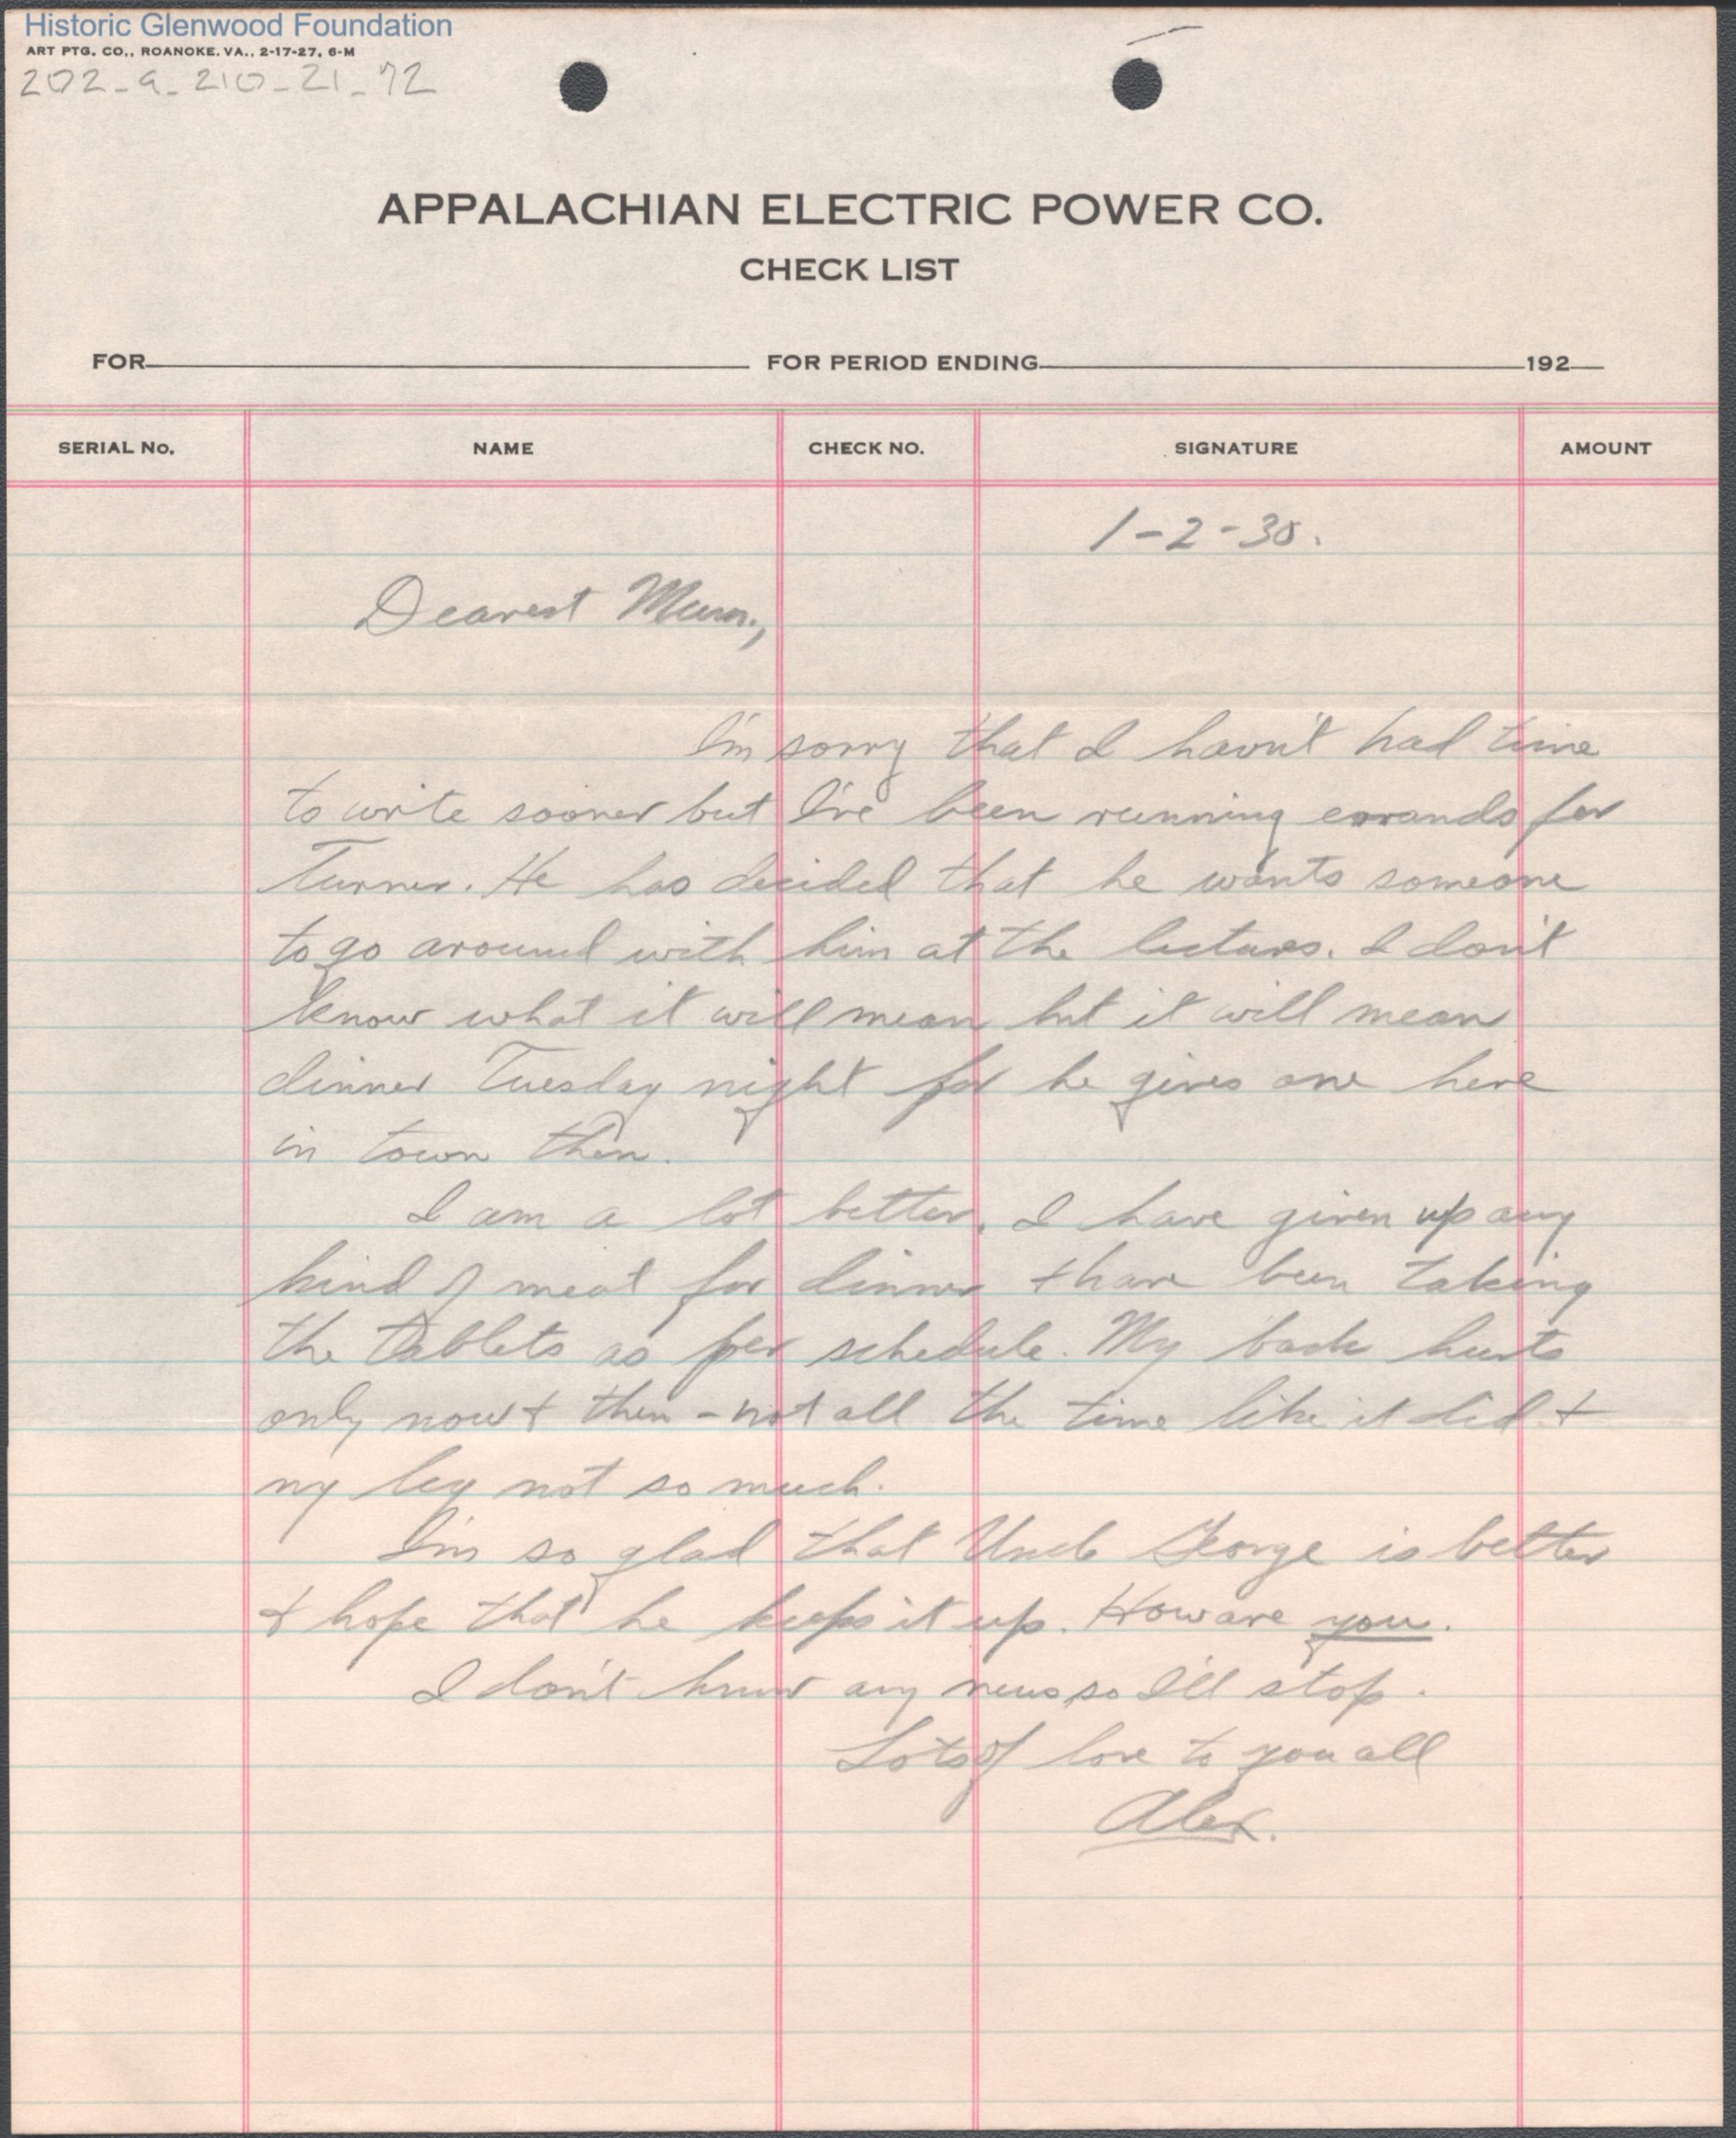 Historic Glenwood Foundation
ART PTG. CO., ROANOKE. VA., 2-17-27, 6-M
202-a-210-21-72
APPALACHIAN ELECTRIC POWER CO.
CHECK LIST
FOR FOR PERIOD ENDING 192
SERIAL No. NAME CHECK NO. SIGNATURE AMOUNT
1-2-30.
Dearest Mum.,
I'm sorry that I havn't had time
to write sooner but I've been running errands for
Turner. He has decided that he wants someone
to go around with him at the lectures. I don't
know what it will mean but it will mean
dinner Tuesday night for he gives one here
in town then.
I am a lot better. I have given up any
kind of meat for dinner & have been taking
the tablets as per schedule. My back hurts
only now & then - not all the time like it did &
my leg not so much.
I'm so glad that Uncle George is better
& hope that he keeps it up. How are you.
I don't know any news so I'll stop.
Lots of love to you all
Alex.